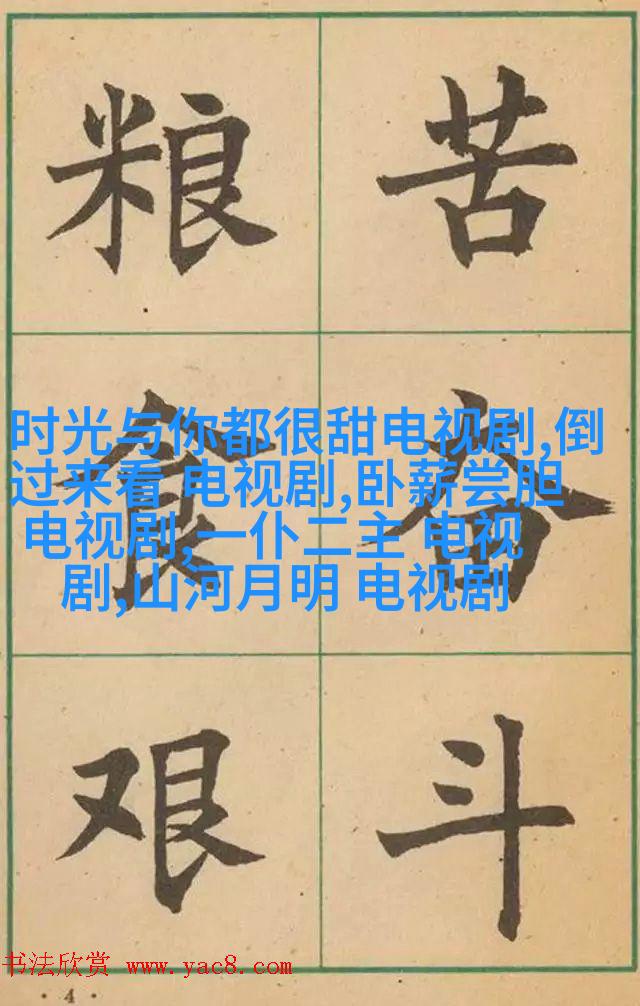 粮食艰
苦奋斗
时光与你都很甜电视剧,倒
过来看 电视剧,卧薪尝胆
电视剧,一仆二主 电视
剧,山河月明 电视剧
书法欣赏 www.yac8.com
· 4 ·